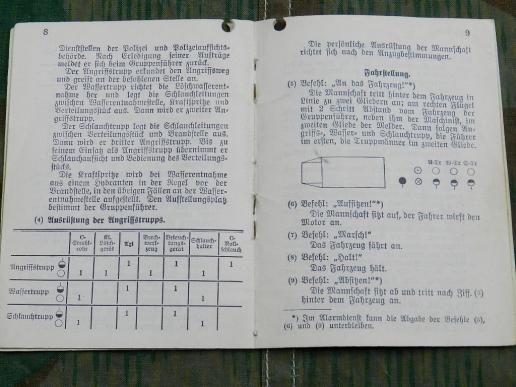 8
Dienststellen der Polizei und Polizeiaufsichts-
behörde. Nach Erledigung seiner Aufträge
meldet er sich beim Gruppenführer zurück.
Der Angriffstrupp erkundet den Angriffsweg
und greift an der befohlenen Stelle an.
Der Wassertrupp richtet die Löschwasserent-
nahme her und legt die Schlauchleitungen
zwischen Wasserentnahmestelle, Kraftspritze und
Verteilungsstück aus. Dann wird er zweiter An-
griffstrupp.
Der Schlauchtrupp legt die Schlauchleitungen
zwischen Verteilungsstück und Brandstelle aus.
Dann wird er dritter Angriffstrupp. Bis zu
seinem Einsatz als Angriffstrupp übernimmt er
Schlauchaufsicht und Bedienung des Verteilungs-
stücks.
Die Kraftspritze wird bei Wasserentnahme
aus einem Hydranten in der Regel vor der
Brandstelle, in den übrigen Fällen an der Wasser-
entnahmestelle aufgestellt. Den Aufstellungsplatz
bestimmt der Gruppenführer.
(4) Ausrüstung der Angriffstrupps.
C-Strahlrohr Axt Beleuchtungsgerät Schlauchhalter C-Rollschlauch
Angriffstrupp 1 1 1
1 1 1 1
Wassertrupp 1 1
1 1
Schlauchtrupp 1 1
1 1
9
Die persönliche Ausrüstung der Mannschaft
richtet sich nach den Anzugbestimmungen.
Fahrstellung.
(5) Befehl: „An das Fahrzeug!"*)
Die Mannschaft tritt hinter dem Fahrzeug in
Linie zu zwei Gliedern an; am rechten Flügel
mit 2 Schritt Abstand vom Fahrzeug der
Gruppenführer, neben ihm der Maschinist, im
zweiten Gliede der Melder. Dann folgen An-
griffs-, Wasser- und Schlauchtrupp, die Führer
im ersten, die Truppmänner im zweiten Gliede.
A-Tr W-Tr S-Tr
(6) Befehl: „Aufsitzen!"*)
Die Mannschaft sitzt auf, der Fahrer wirft den
Motor an.
(7) Befehl: „Marsch!"
Das Fahrzeug fährt an.
(8) Befehl: „Halt!"
Das Fahrzeug hält.
(9) Befehl: „Absitzen!"*)
Die Mannschaft sitzt ab und tritt nach Ziff. (5)
hinter dem Fahrzeug an.
*) Im Alarmdienst kann die Abgabe der Befehle (5),
(6) und (9) unterbleiben.